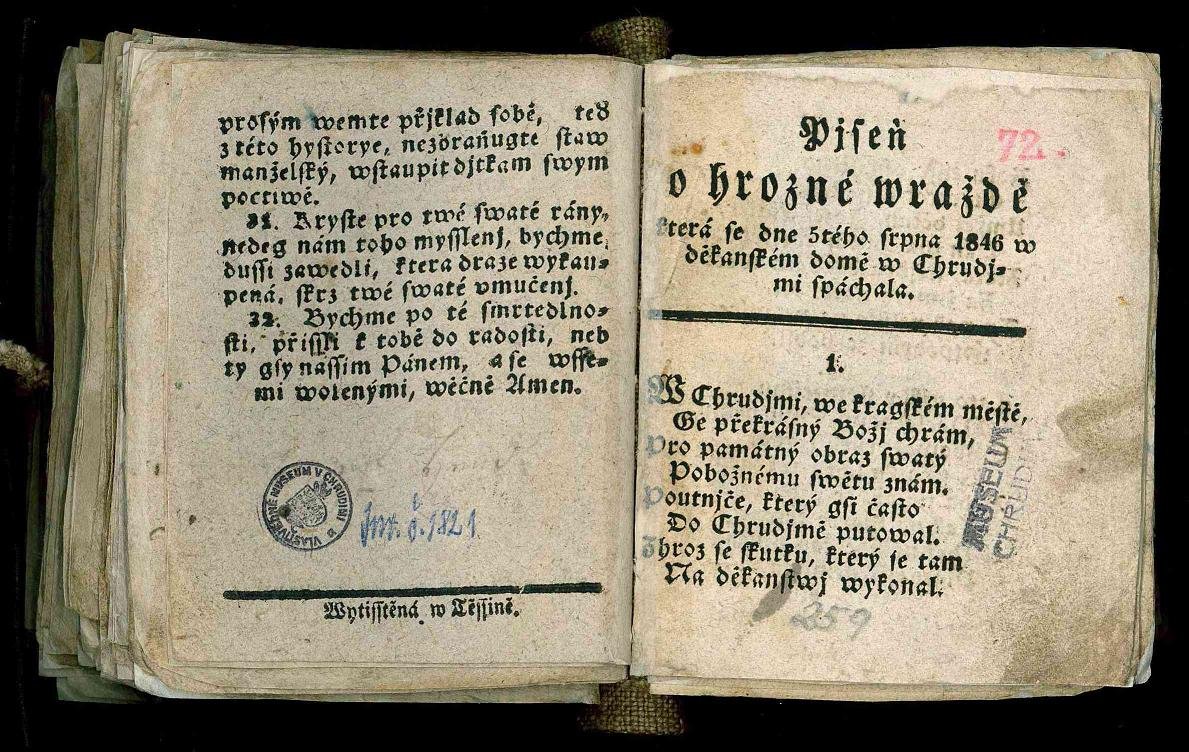 prosým wemte přjklad sobě, teď
z této hystorye, nezbraňugte staw
manželský, wstaupit djtkam swým
poctiwě.
31. Kryste pro twé swaté rány,
nedeg nám toho mysslenj, bychme
dussi zawedli, ktera draze wykau-
pená, skrz twé swaté vmučenj.
32. Bychme po té smrtedlno-
sti, přissli k tobě do radosti, neb
ty gsy nassim Pánem, a se wsse-
mi wolenými, wěčně Amen.
VLASTIVĚDNÉ MUSEUM V CHRUDIMI
Inv. č. 1821
Wytisstěná w Těssině.
Pjseň
72.
o hrozné wraždě
která se dne 5tého srpna 1846 w
děkanském domě w Chrudj-
mi spáchala.
1.
W Chrudjmi, we kragském městě,
Ge překrásný Božj chrám,
Pro památný obraz swatý
Pobožnému swětu znám.
Poutnjče, který gsi často
Do Chrudjmě putowal.
Zhroz se skutku, který se tam
Na děkanstwj wykonal.
MUSEUM
CHRUDIM
259